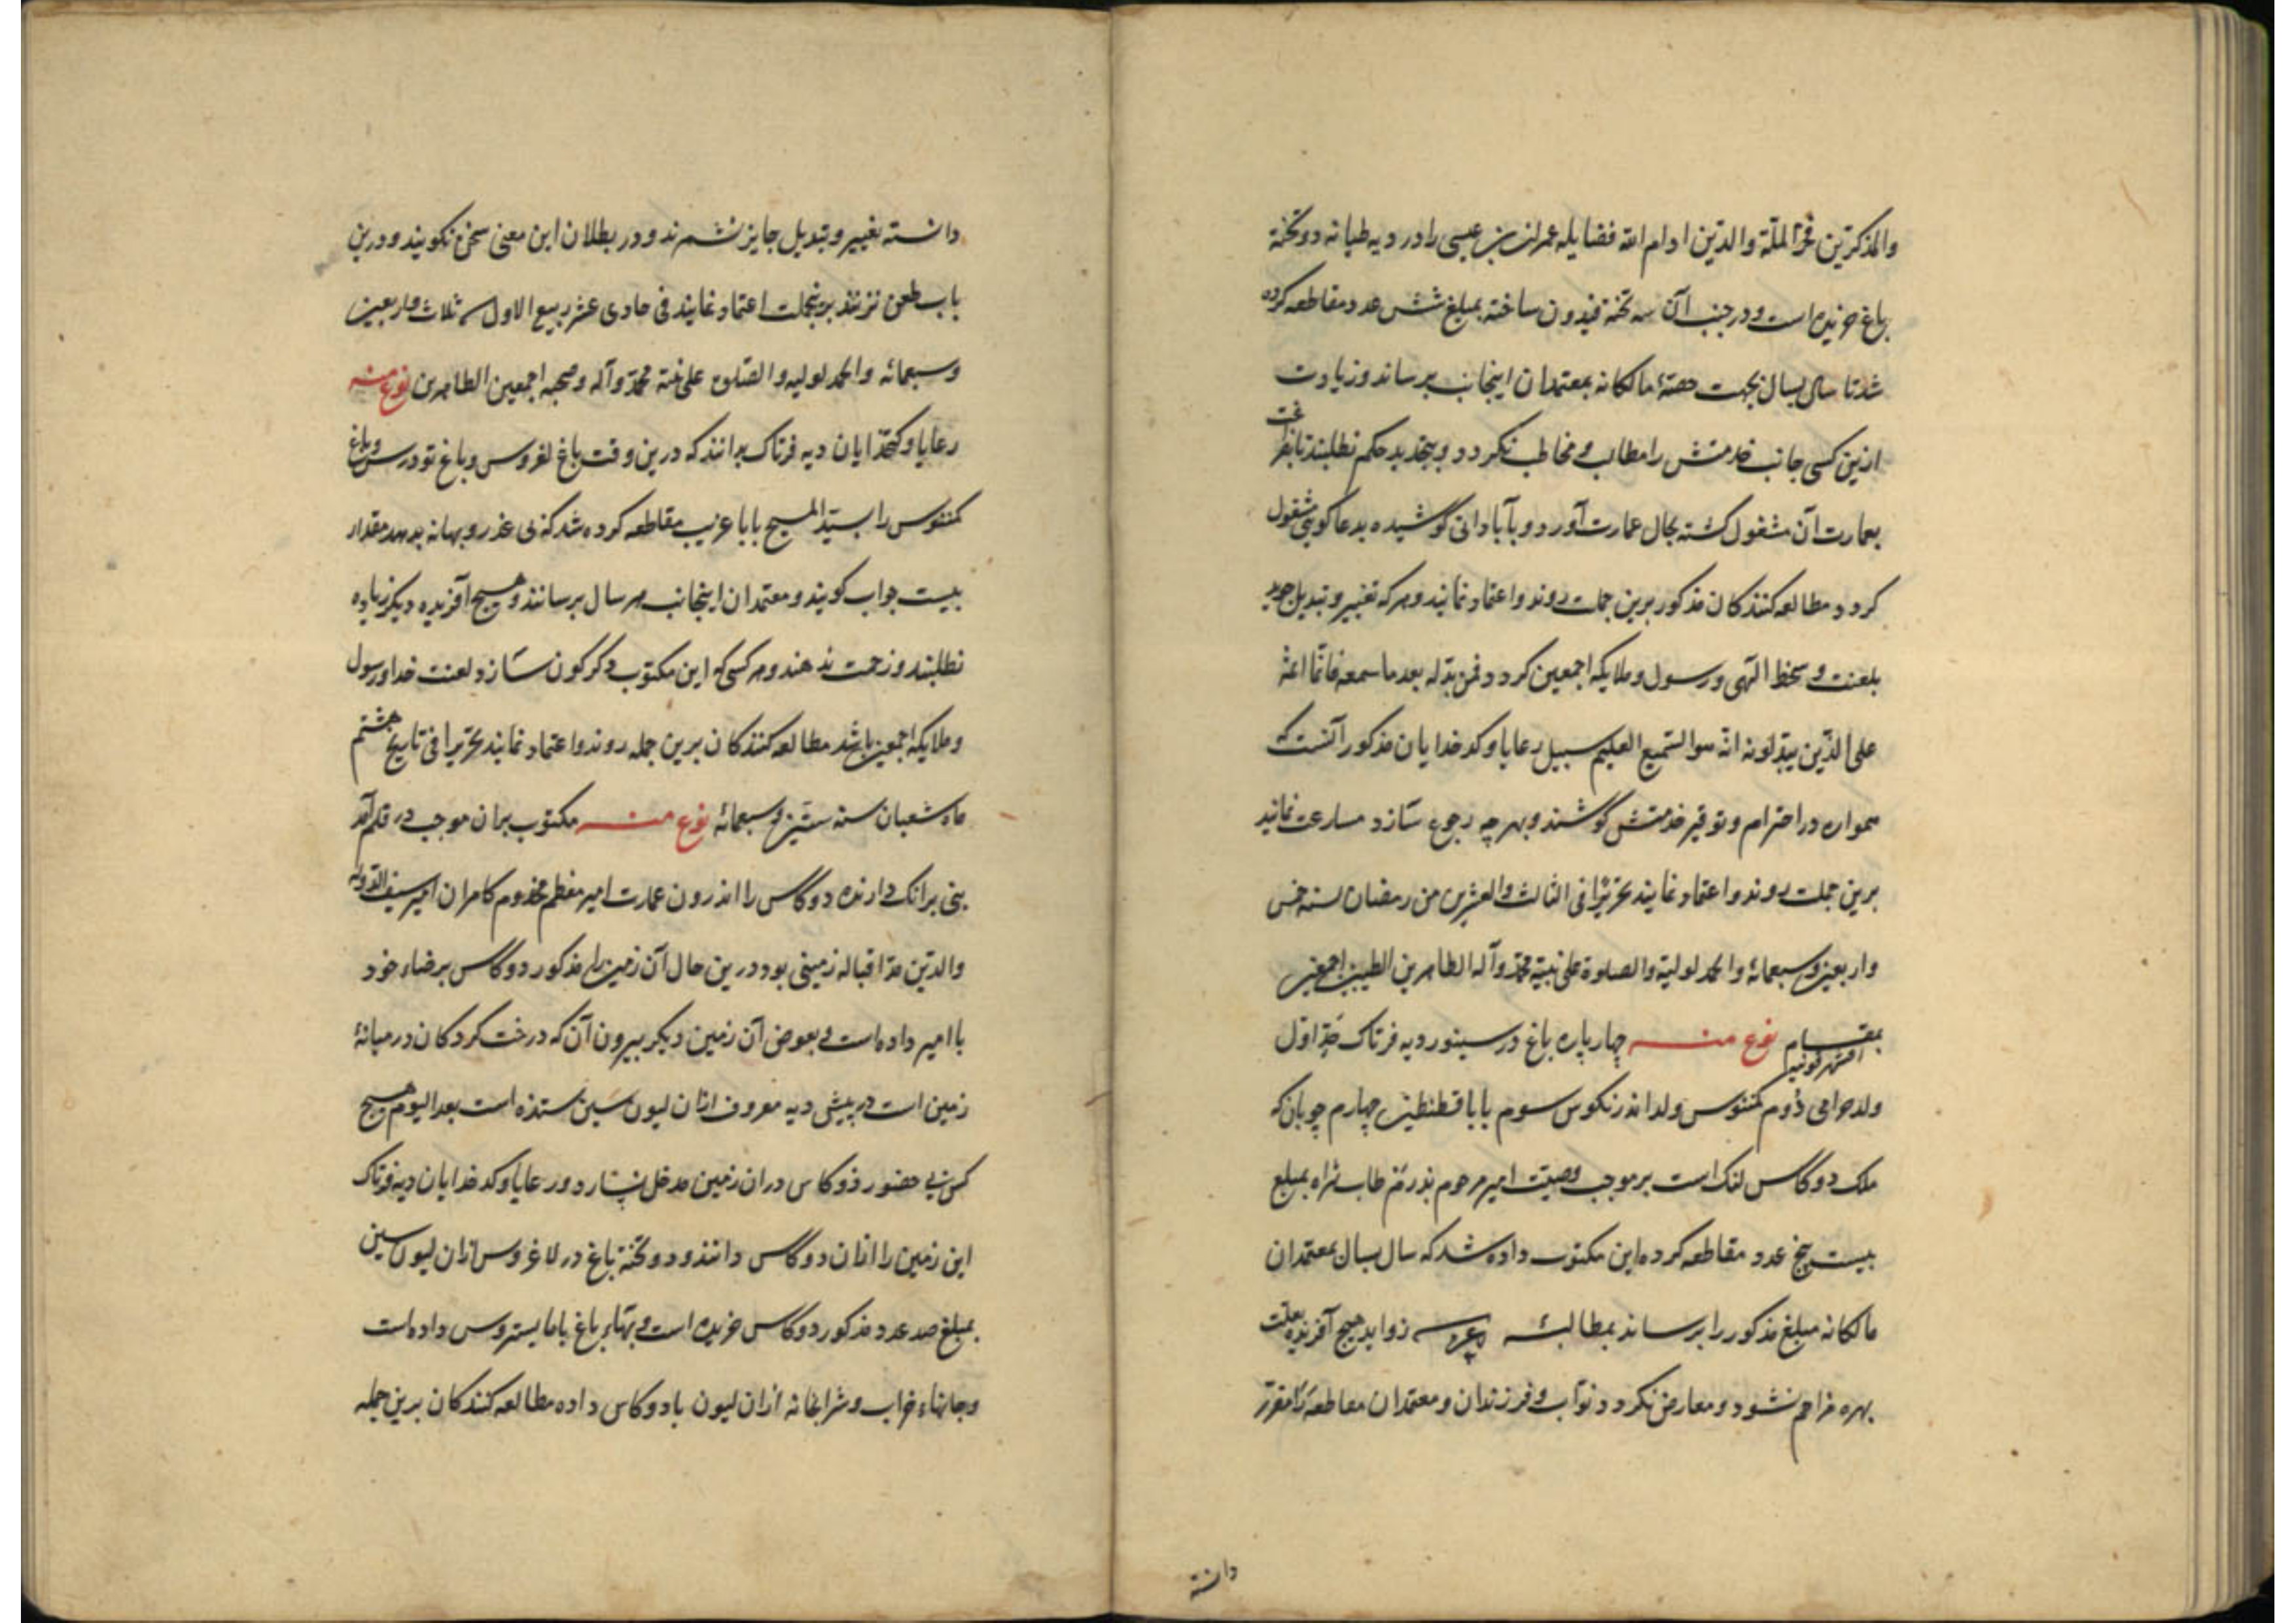 والمذکرین فخر الملّة والدّین ادام الله فضایله عمران بن عیسی را در دیه طیانه دو تخته
باغ خریده است و در جنب آن سه تخته فیدون ساخته بمبلغ شش عدد مقاطعه کرده
شد تا سال بسال بجهت حصّهٔ مالکانه بمعتمدان اینجانب برساند و زیادت
ازین کسی جانب خدمتش را مطالب و مخاطب نکردد و بتجدید حکم نطلبند تا بفراغت
بعمارت آن مشغول کشته بحال عمارت آورد و بآبادانی کوشیده بدعا کویی مشغول
کردد مطالعه کنندکان مذکور برین جملت روند و اعتماد نمایند و هرکه تغییر و تبدیل جوید
بلعنت و سخط الهی و رسول و ملایکه اجمعین کردد فمن بدّله بعد ما سمعه فانّما اثمه
علی الذّین یبدّلونه انّه هو السّمیع العلیم سبیل رعایا و کدخدایان مذکور آنست که
همواره در احترام و توقیر خدمتش کوشند و بهرچه رجوع سازد مسارعت نمایند
برین جملت روند و اعتماد نمایند تحریرًا فی الثالث والعشرین من رمضان لسنه خمس
واربعین وسبعمائه والحمد لولیّه والصلوة علی نبیّه محمّد وآله الطاهرین الطیبین اجمعین
بمقام اقشهر قونیه نوع منه چهار پاره باغ در سینور دیه فرتاک حدّ اوّل
ولد حرامی دُوم کمننوس ولد اندرنکوس سوم بابا قسطنطین چهارم چوبان که
ملک دوکاس لنک است بر موجب وصیّت امیر مرحوم پدرم طاب ثراه بمبلغ
بیست پنج عدد مقاطعه کرده این مکتوب داده شد که سال بسال بمعتمدان
مالکانه مبلغ مذکور را برساند بمطالبهٔ زواید هیچ آفریده بعلّت
بهره مزاحم نشود و معارض نکردد نوّاب و فرزندان و معتمدان مقاطعه را مقرّر
دانسته
دانسته تغییر و تبدیل جایز نشمرند و در بطلان این معنی سخن نکویند و درین
باب طعن نزنند برینجملت اعتماد نمایند فی حادی عشر ربیع الاول سنه ثلاث واربعین
وسبعمائه والحمد لولیه والصّلوة علی نبیّه محمّد وآله وصحبه اجمعین الطاهرین نوع منه
رعایا و کتخدایان دیه فرتاک بدانند که درین وقت باغ لغروس و باغ تودرس و باغ
کمننوس را بسیّد المسیح بابا غریب مقاطعه کرده شد که بی عذر و بهانه بدهد مقدار
بیست جواب کویند و معتمدان اینجانب هر سال برسانند و هیچ آفریده دیکر زیاده
نطلبند و زحمت ندهند و هر کسی که این مکتوب دکرکون سازد لعنت خدا و رسول
و ملایکه اجمعین باشد مطالعه کنندکان برین جمله روند و اعتماد نمایند تحریرا فی تاریخ هشتم
ماه شعبان سنه ستّین وسبعمائه نوع منه مکتوب بران موجب در قلم آمد
بنی برانک دارنده دوکاس را اندرون عمارت امیر معظم مخدوم کامران امیر سیف الدّوله
والدّین مدّ اقباله زمینی بود درین حال آن زمین را مذکور دوکاس برضاء خود
با امیر داده است و بعوض آن زمین دیکر بیرون آن که درخت کردکان در میانهٔ
زمین است در پیش دیه معروف ازان لیون سین ستده است بعد الیوم هیچ
کس بی حضور دوکاس دران زمین مدخل نسازد و رعایا و کدخدایان دیه فرتاک
این زمین را ازان دوکاس دانند و دو تخته باغ در لاغروس ازان لیون سین
بمبلغ صد عدد مذکور دوکاس خریده است و بهاء باغ باما یستروس داده است
و جایهاء خراب و شرابخانه ازان لیون بادوکاس داده مطالعه کنندکان برین جمله